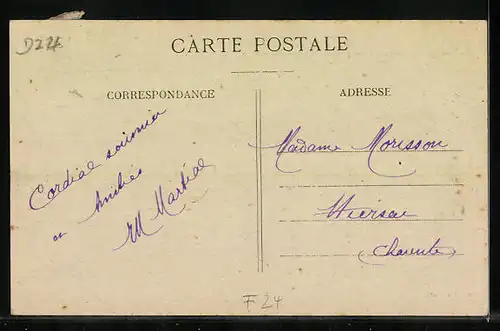 D224
CARTE POSTALE
CORRESPONDANCE
ADRESSE
Cordial souvenir
Amitiés
M Martial
Madame Morisson
Hiersac
Charente
F 24